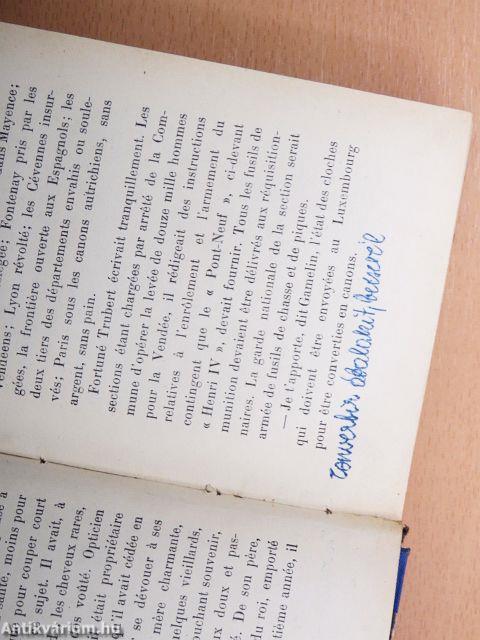 santé, moins pour
pour couper court
sujet. Il avait, à
les cheveux rares,
os voûté. Opticien
était propriétaire
il avait cédée en
se dévouer à ses
mère charmante,
quelques vieillards,
touchant souvenir,
doux et pas-
é. De son père,
du roi, emporté
tième année, il
Vendéens; Lyon révolté; les Cévennes insur-
gées, la frontière ouverte aux Espagnols; les
deux tiers des départements envahis ou soule-
vés; Paris sous les canons autrichiens, sans
argent, sans pain.
Fortuné Trubert écrivait tranquillement. Les
sections étant chargées par arrêté de la Com-
mune d'opérer la levée de douze mille hommes
pour la Vendée, il rédigeait des instructions
relatives à l'enrôlement et l'armement du
contingent que le « Pont-Neuf », ci-devant
« Henri IV », devait fournir. Tous les fusils de
munition devaient être délivrés aux réquisition-
naires. La garde nationale de la section serait
armée de fusils de chasse et de piques.
— Je t'apporte, dit Gamelin, l'état des cloches
qui doivent être envoyées au Luxembourg
pour être converties en canons.
convertir átalakít,
Antikvárium.hu